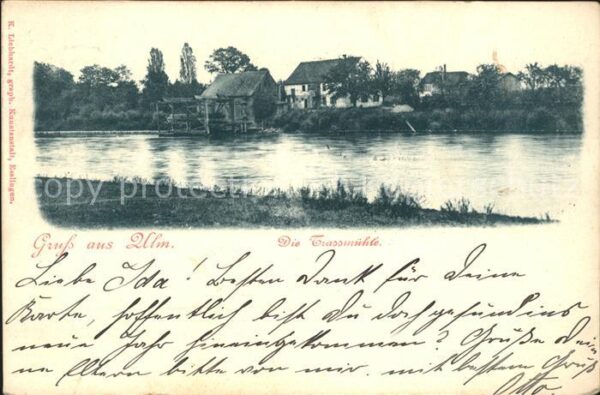 K. Liebhardt, graph. Kunstanstalt, Esslingen.
copy protected
Gruß aus Ulm.
Die Trassmühle.
Liebe Ida! Besten Dank für deine
Karte, hoffentlich bist du doch gesund ins
neue Jahr hineingekommen? Grüße dein
ne Eltern bitte von mir. mit bestem Gruß
Otto.